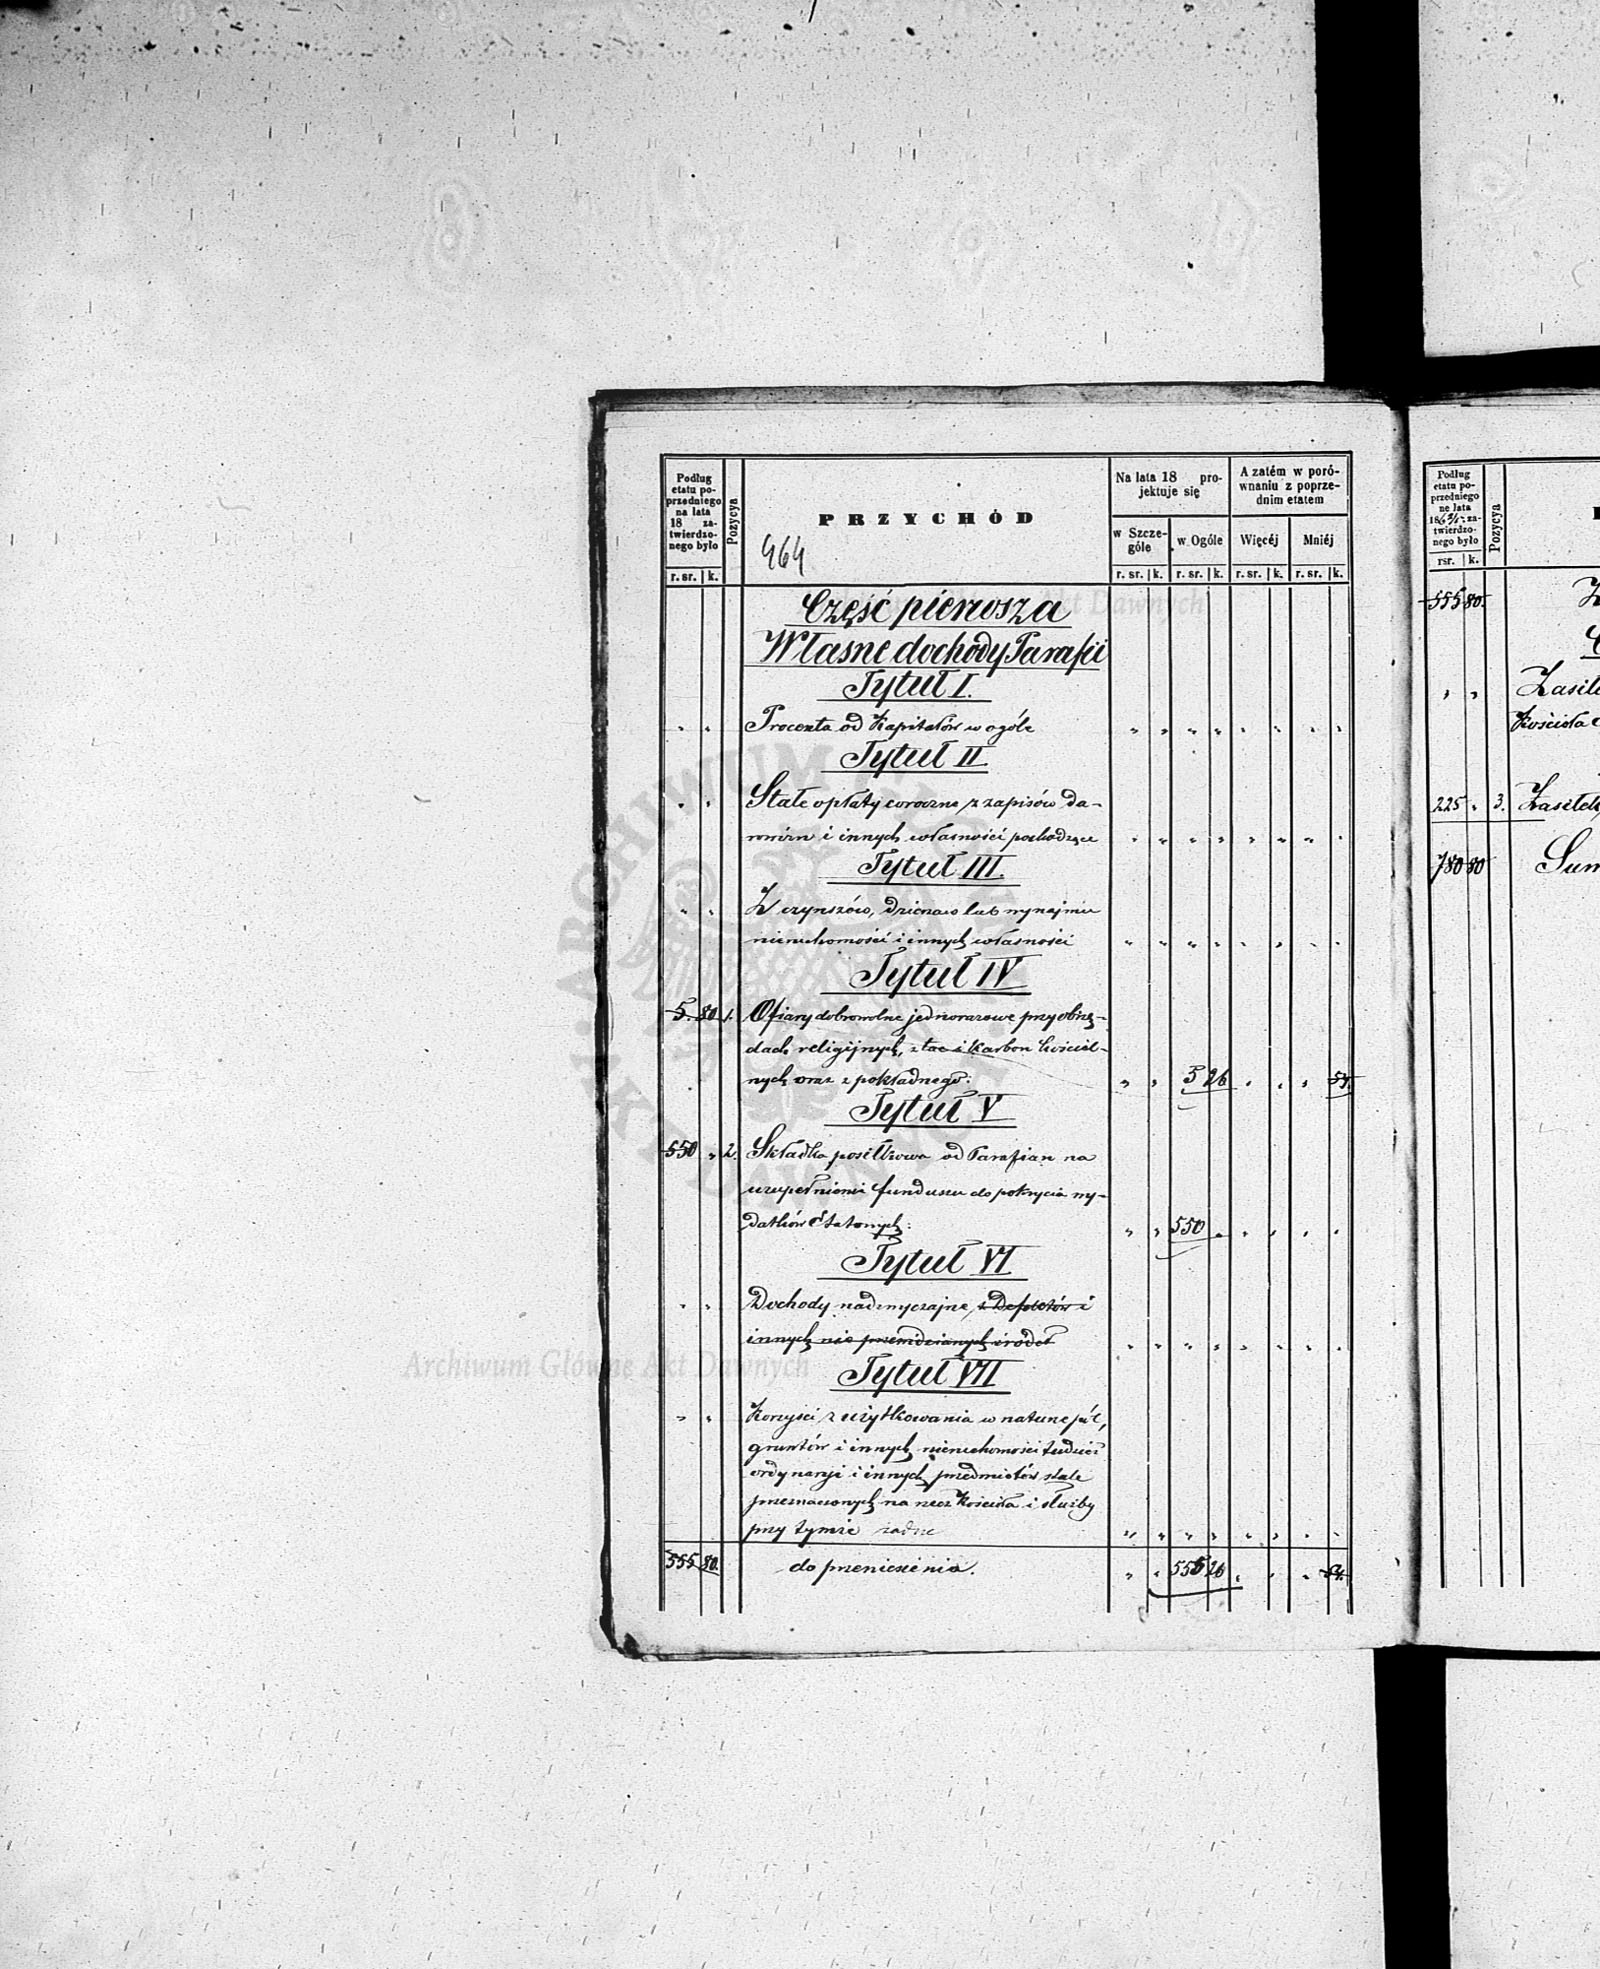 Podług
etatu po-
przedniego
na lata
18 za-
twierdzo-
nego było
r. sr. k.
Pozycya
PRZYCHÓD
464
Na lata 18 pro-
jektuje się
w Szcze-
góle
w Ogóle
r. sr. k. r. sr. k.
A zatém w poró-
wnaniu z poprze-
dnim etatem
Więcéj Mniéj
r. sr. k. r. sr. k.
Część pierwsza
Własne dochody Parafii
Tytuł I.
Procenta od Kapitałów w ogóle
Tytuł II
Stałe opłaty coroczne, z zapisów da-
rowizn i innych własności pochodzące
Tytuł III.
Z czynszów, dzierżaw lub wynajmu
nieruchomości i innych własności
Tytuł IV
5. 80 1. Ofiary dobrowolne jednorazowe przy obrzę-
dach religijnych, z tac i Karbon kościel-
nych oraz z pokładnego: 5 26 54.
Tytuł V
550 " 2. Składka posiłkowa od Parafian na
uzupełnienie funduszu do pokrycia wy-
datków Etatowych: 550
Tytuł VI
Dochody nadzwyczajne, z Defektów i
innych nie przewidzianych źródeł
Tytuł VII
Korzyści z użytkowania w naturze pól,
gruntów i innych nieruchomości tudzież
ordynaryi i innych przedmiotów stale
przeznaczonych na rzecz Kościoła i służby
przy tymże żadne
555 80. do przeniesienia. 555 26 54.
Podług
etatu po-
przedniego
ne lata
za-
twierdzo-
nego było
rsr. k.
Pozycya
555 80.
Kościoła
225 " 3. Zasiłek
780 80 Sum
Archiwum Główne Akt Dawnych